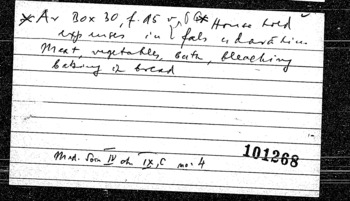 *Av Box 30, f. 15 v, Household
expenses in fals
meat, vegetables, bath, bleaching
baking of bread
Med. Soc IV ch IX, C no. 4
101268